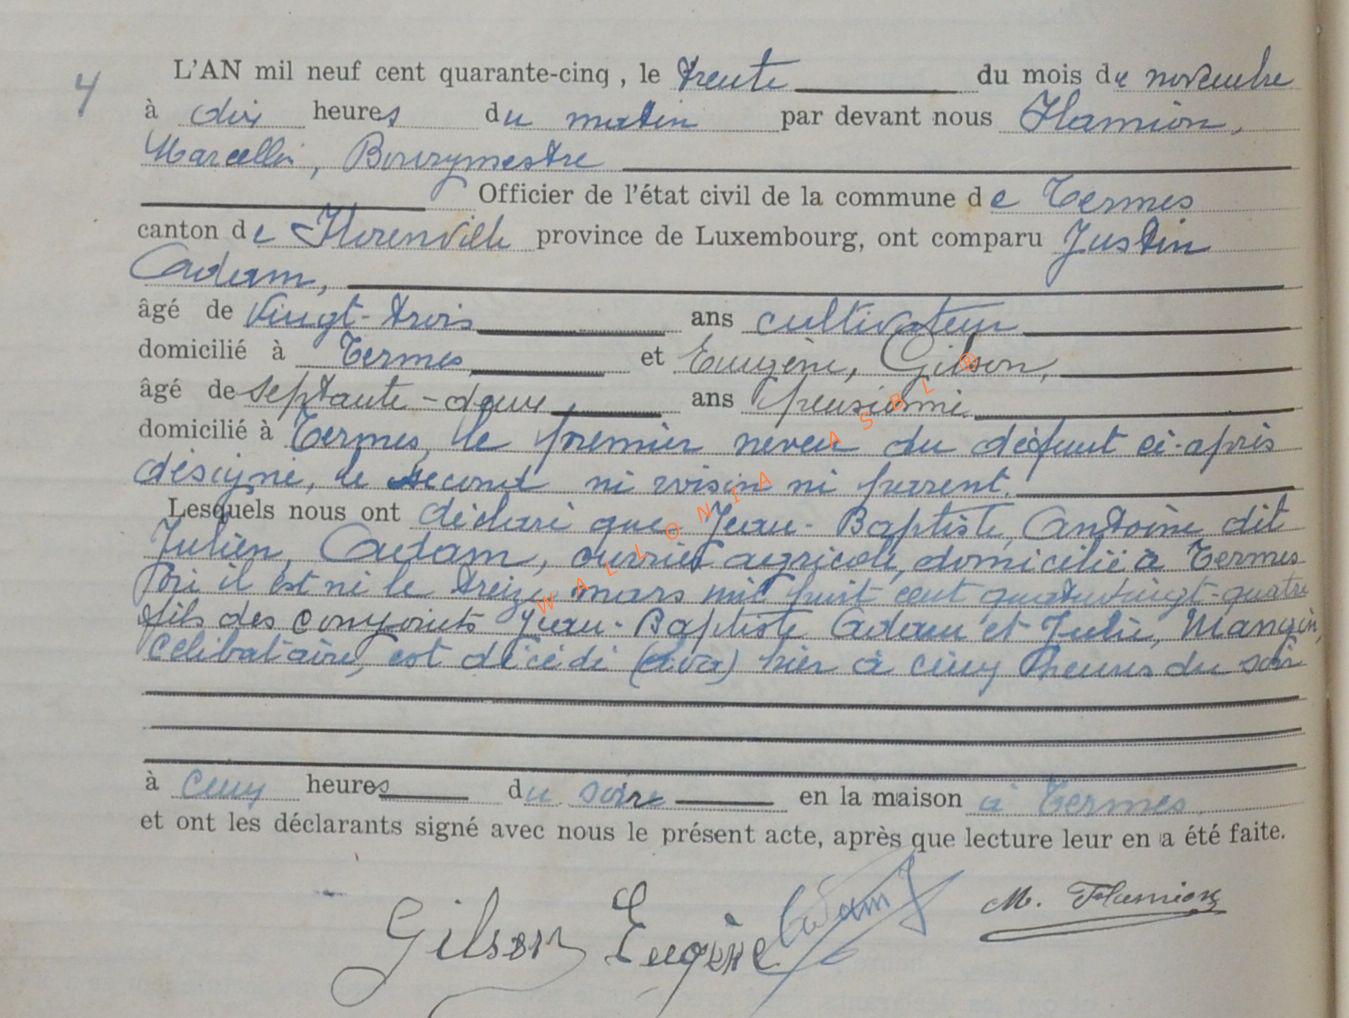 4
L'AN mil neuf cent quarante-cinq, le trente du mois de novembre
à dix heures du matin par devant nous Flamion,
Marcellin, Bourgmestre
Officier de l'état civil de la commune de Termes
canton de Florenville province de Luxembourg, ont comparu Justin
Adam,
âgé de vingt-trois ans cultivateur
domicilié à Termes et Eugène, Gilson,
âgé de septante-deux, ans pensionné
domicilié à Termes, le premier neveu du défunt ci-après
désigné, le second ni voisin ni parent.
Lesquels nous ont déclaré que Jean-Baptiste, Antoine dit
Julien, Adam, ouvrier agricole, domicilié à Termes
où il est né le treize mars mil huit cent quatre vingt-quatre
fils des conjoints Jean-Baptiste Adam et Julie, Mangin,
célibataire, est décédé (liva) hier à cinq heures du soir
à cinq heures du soire en la maison à Termes
et ont les déclarants signé avec nous le présent acte, après que lecture leur en a été faite.
Gilson Eugène Adam J M. Flamion
WALLONIA ASBL ®